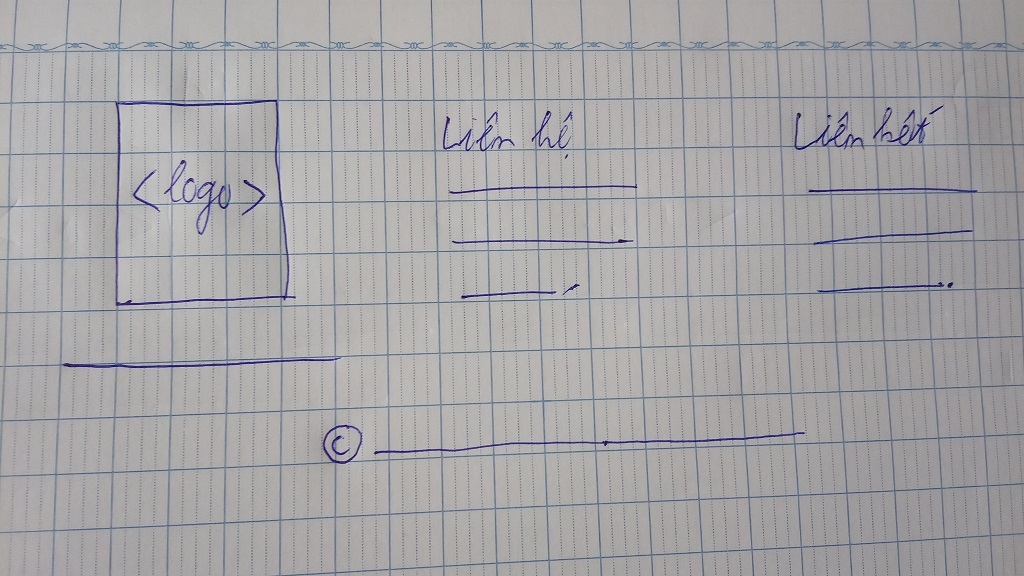 <logo>
Liên hệ
Liên hết
©